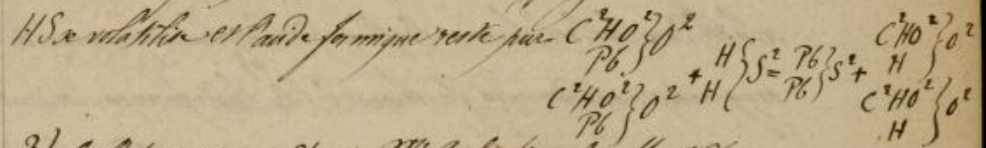 HS se volatilise et l'acide formique reste pur. C²HO²}O²
Pb
C²HO²}O² + H}S² = Pb}S² + C²HO²}O²
Pb H Pb H
C²HO²}O²
H